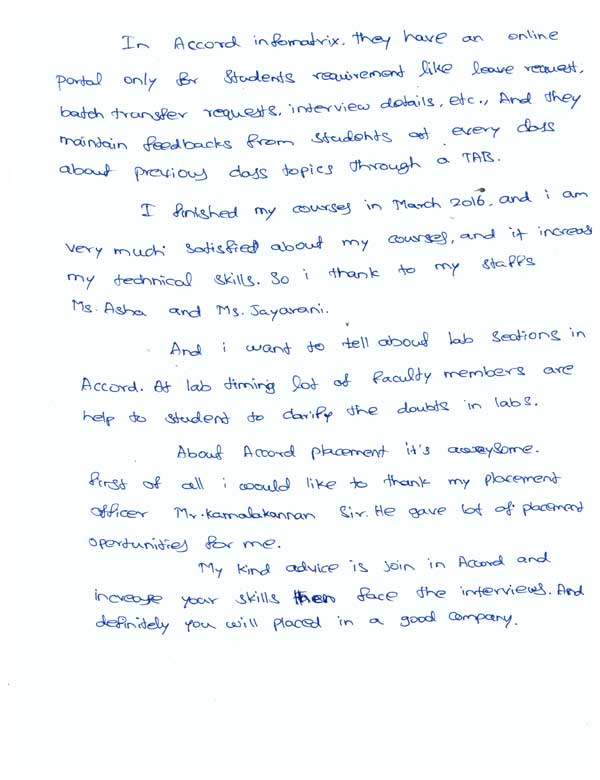 In Accord infomatrix. they have an online
portal only for students requirement like leave request,
batch transfer requests, interview details, etc., And they
maintain feedbacks from students at every class
about previous class topics through a TAB.
I finished my courses in March 2016, and i am
very much satisfied about my courses, and it increas
my technical skills. So i thank to my staffs
Ms. Asha and Ms. Jayarani.
And i want to tell about lab sections in
Accord. At lab timing lot of faculty members are
help to student to clarify the doubts in labs.
About Accord placement it's aweysome.
first of all i would like to thank my placement
officer Mr. Kamalakannan Sir. He gave lot of placement
opertunities for me.
My kind advice is join in Accord and
increase your skills then face the interviews. And
definitely you will placed in a good company.